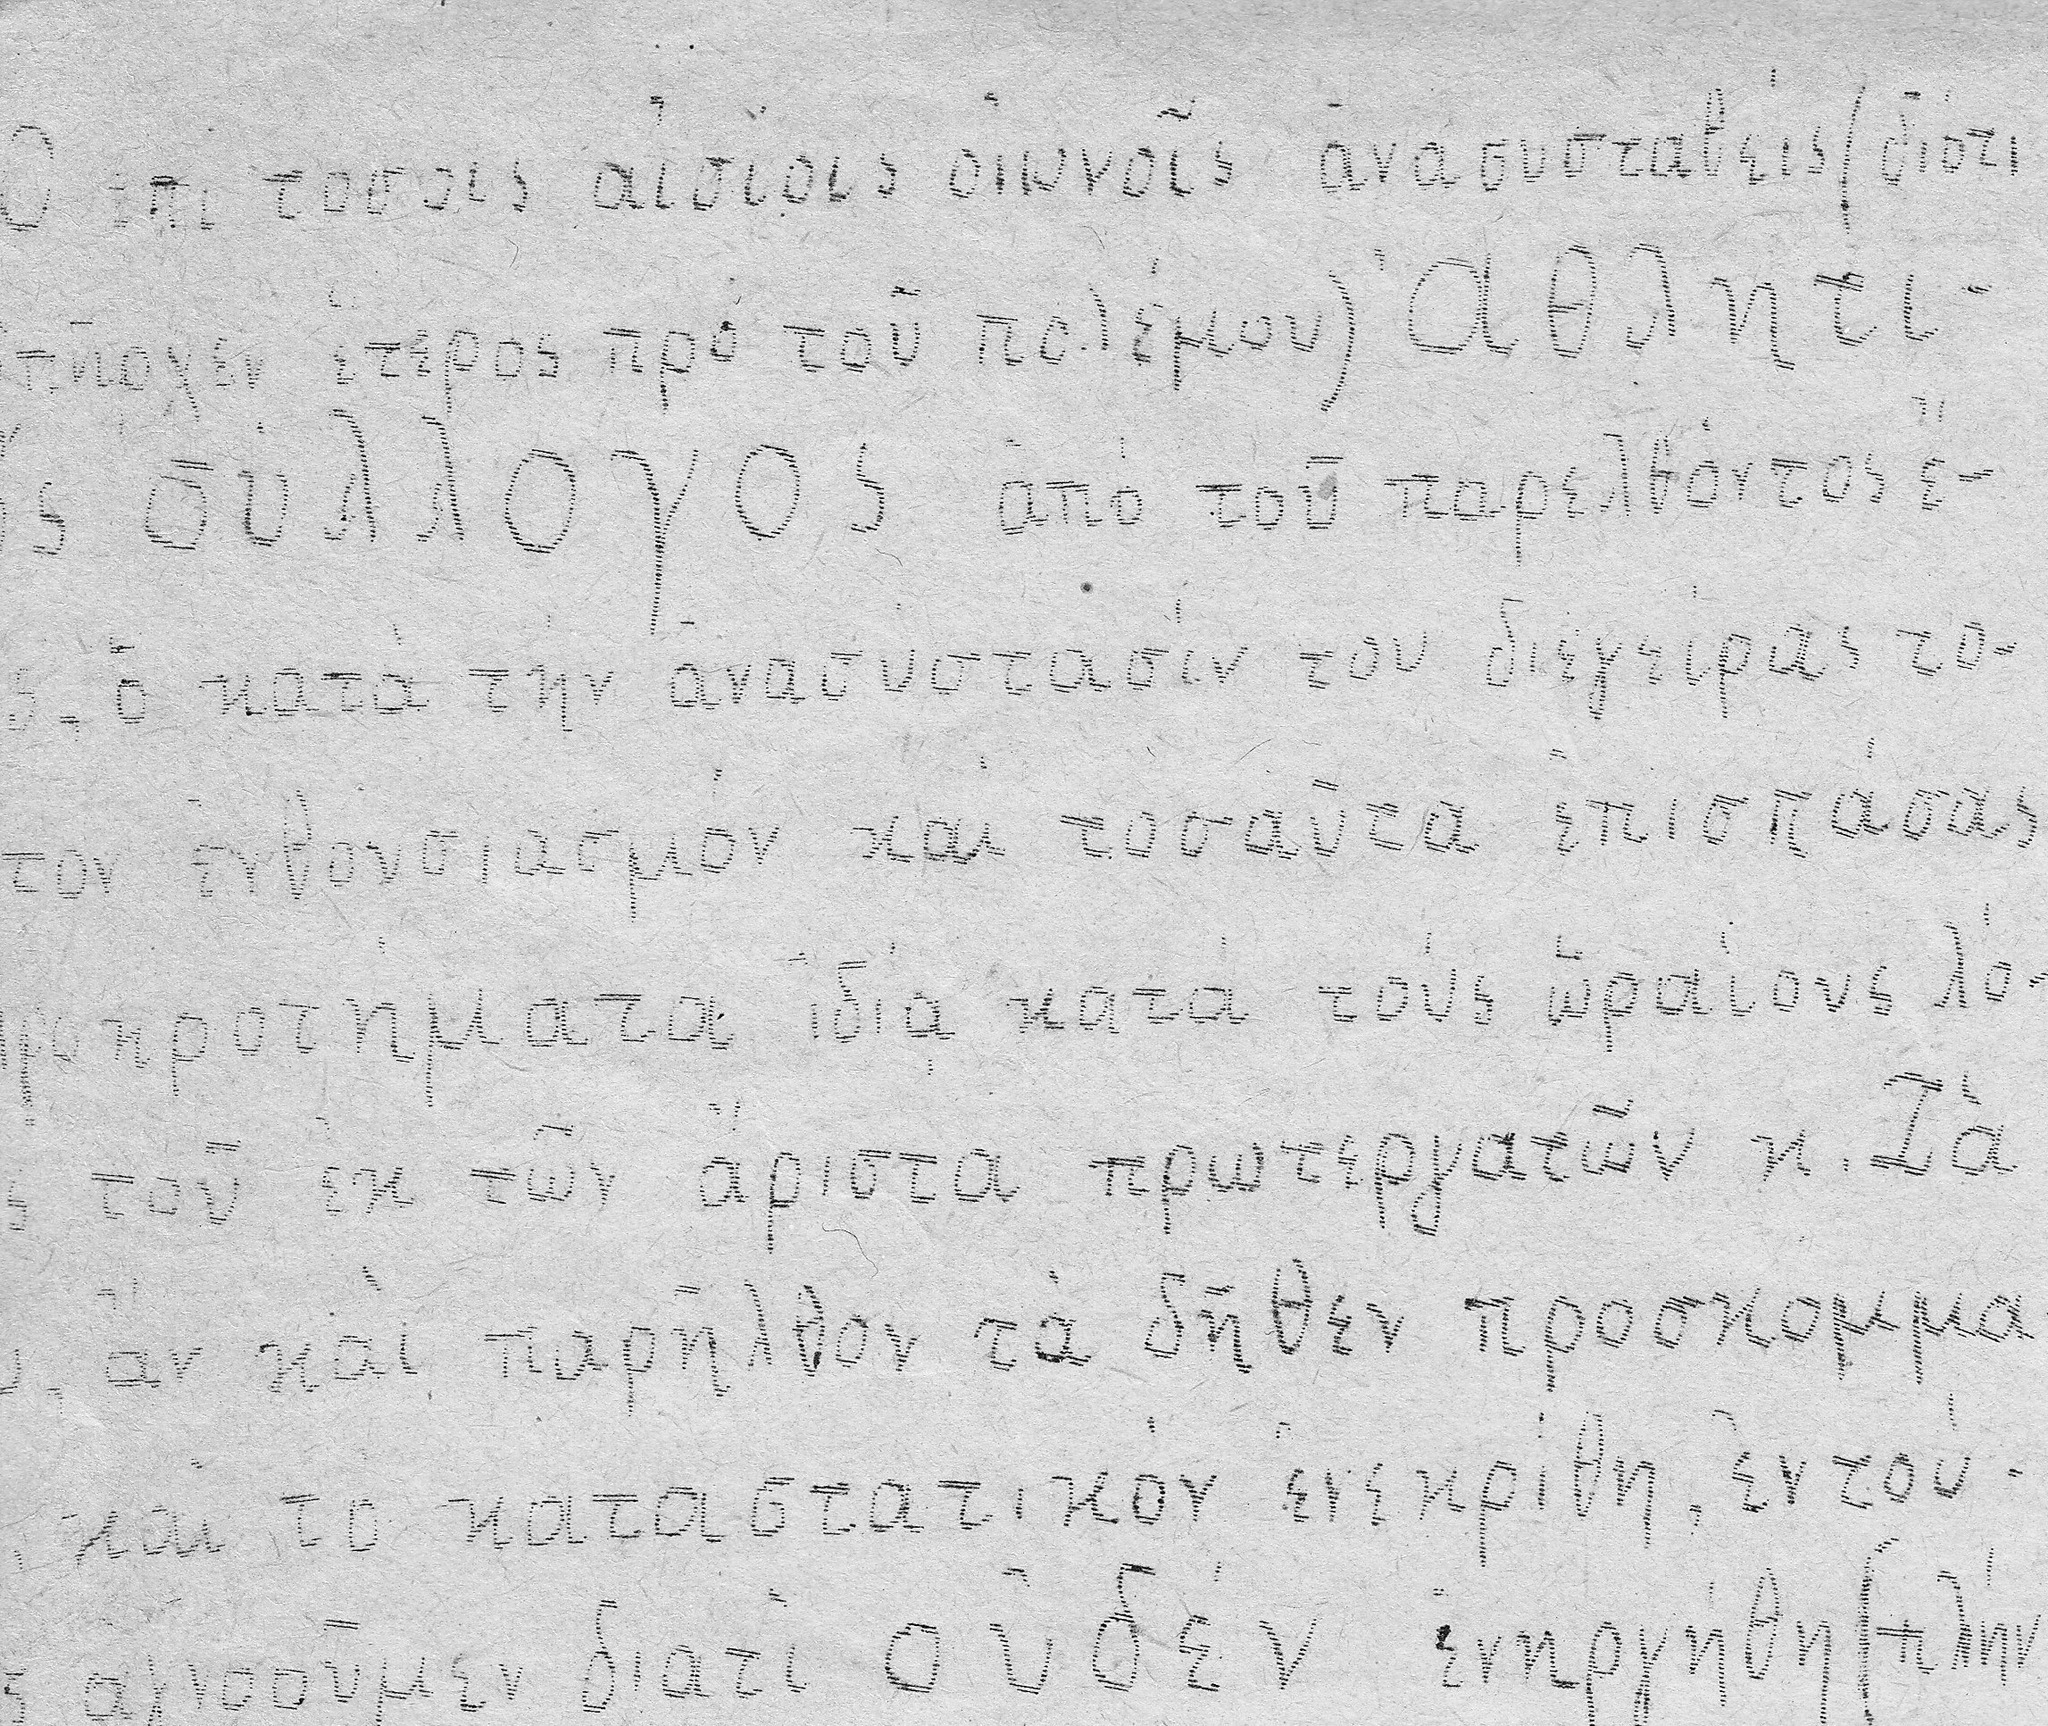 Ὁ ἐπὶ τόσοις αἰσίοις οἰωνοῖς ἀνασυσταθείς (διότι
ὑπῆρχεν ἕτερος πρὸ τοῦ πολέμου) Ἀθλητι-
κός σύλλογος ἀπὸ τοῦ παρελθόντος ἔ-
ς, ὁ κατὰ τὴν ἀνασύστασίν του διεγείρας τό-
τον ἐνθουσιασμόν καὶ τοσαῦτα ἐπισπάσας
κροτήματα ἰδίᾳ κατὰ τούς ὡραίους λό-
ς τοῦ ἐκ τῶν ἄριστα πρωτεργατῶν κ. Ζά
ν, ἄν καὶ παρῆλθον τὰ δῆθεν προσκομμα
, καὶ τὸ καταστατικόν ἐνεκρίθη, ἐν τού-
ς ἀγνοοῦμεν διατὶ οὐδέν ἐνηργήθη (πλήν